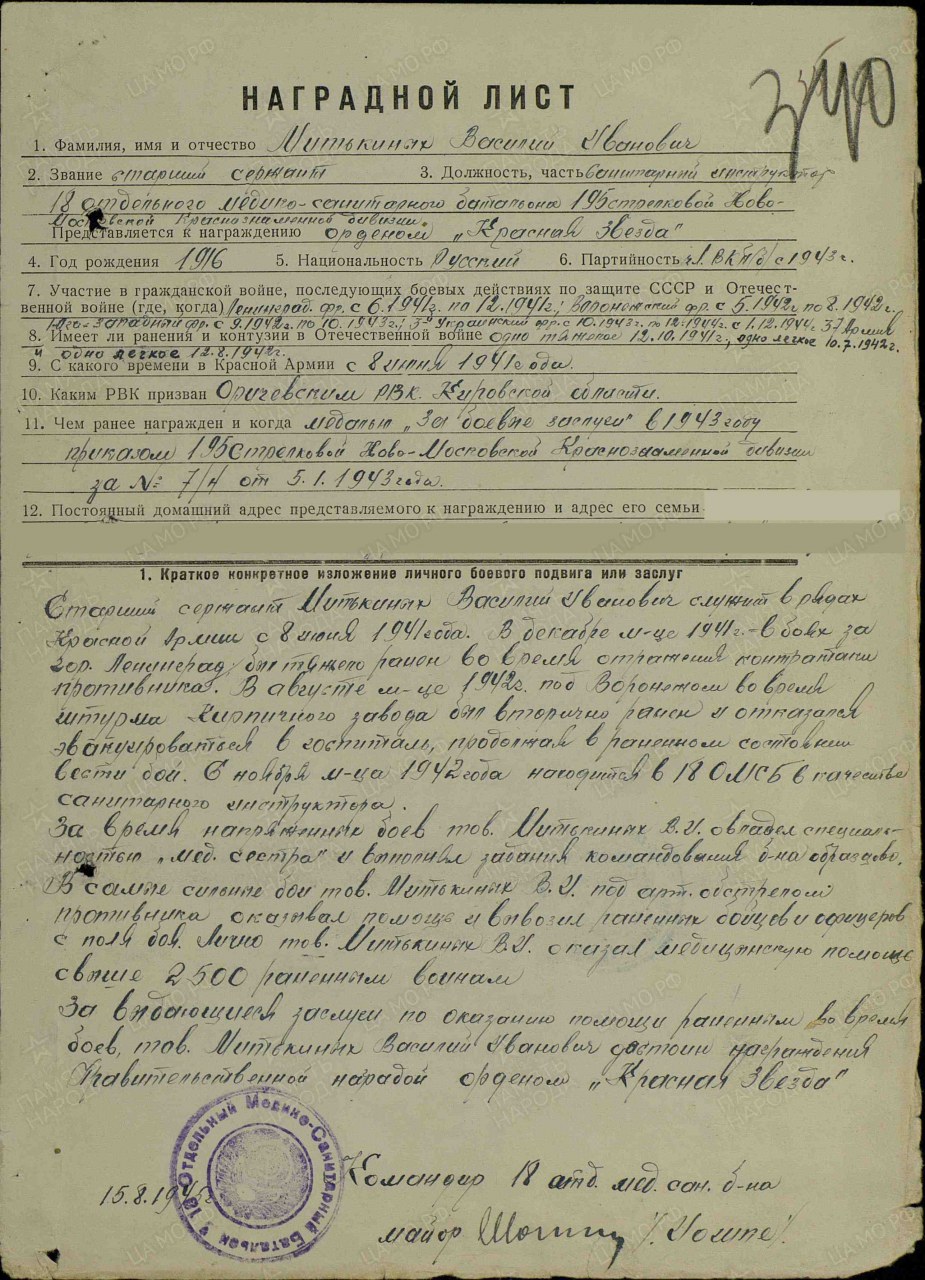 НАГРАДНОЙ ЛИСТ
1. Фамилия, имя и отчество Митькиных Василий Иванович
2. Звание старший сержант 3. Должность, часть санитарный инструктор
18 отдельного медико-санитарного батальона 195 стрелковой Ново-
Московской Краснознаменной дивизии
Представляется к награждению орденом „Красная Звезда"
4. Год рождения 1916 5. Национальность Русский 6. Партийность чл. ВКП/б/ с 1943 г.
7. Участие в гражданской войне, последующих боевых действиях по защите СССР и Отечест-
венной войне (где, когда) Ленинград. фр. с 6.1941г. по 12.1941г.; Воронежский фр. с 5.1942г. по 8.1942г.
Юго-Западный фр. с 9.1942г. по 10.1943г.; 3й Украинский фр. с 10.1943г. по 12.1944г. с 1.12.1944г. 37 Армия
8. Имеет ли ранения и контузии в Отечественной войне одно тяжелое 12.10.1941г., одно легкое 10.7.1942г.
и одно легкое 12.8.1942г.
9. С какого времени в Красной Армии с 8 июня 1941 года.
10. Каким РВК призван Оричевским РВК Кировской области.
11. Чем ранее награжден и когда медалью „За боевые заслуги" в 1943 году
приказом 195 Стрелковой Ново-Московской Краснознаменной дивизии
за № 7/н от 5.1.1943 года.
12. Постоянный домашний адрес представляемого к награждению и адрес его семьи
1. Краткое конкретное изложение личного боевого подвига или заслуг
Старший сержант Митькиных Василий Иванович служит в рядах
Красной Армии с 8 июня 1941 года. В декабре м-це 1941 г. - в боях за
гор. Ленинград был тяжело ранен во время отражения контратаки
противника. В августе м-це 1942г. под Воронежом во время
штурма Кирпичного завода был вторично ранен и отказался
эвакуироваться в госпиталь, продолжая в раненном состоянии
вести бой. С ноября м-ца 1942 года находится в 18 ОМСБ в качестве
санитарного инструктора.
За время напряженных боев тов. Митькиных В.И. овладел специаль-
ностью „мед. сестра" и выполнял задания командования б-на образцово.
В самые сильные бои тов. Митькиных В.И. под арт. обстрелом
противника оказывал помощь и вывозил раненных бойцов и офицеров
с поля боя. Лично тов. Митькиных В.И. оказал медицинскую помощь
свыше 2500 раненным воинам
За выдающиеся заслуги по оказанию помощи раненным во время
боев, тов. Митькиных Василий Иванович достоин награждения
Правительственной наградой орденом „Красная Звезда"
18 Отдельный Медико-Санитарный Батальон
15.8.1945
Командир 18 отд. мед. сан. б-на
майор